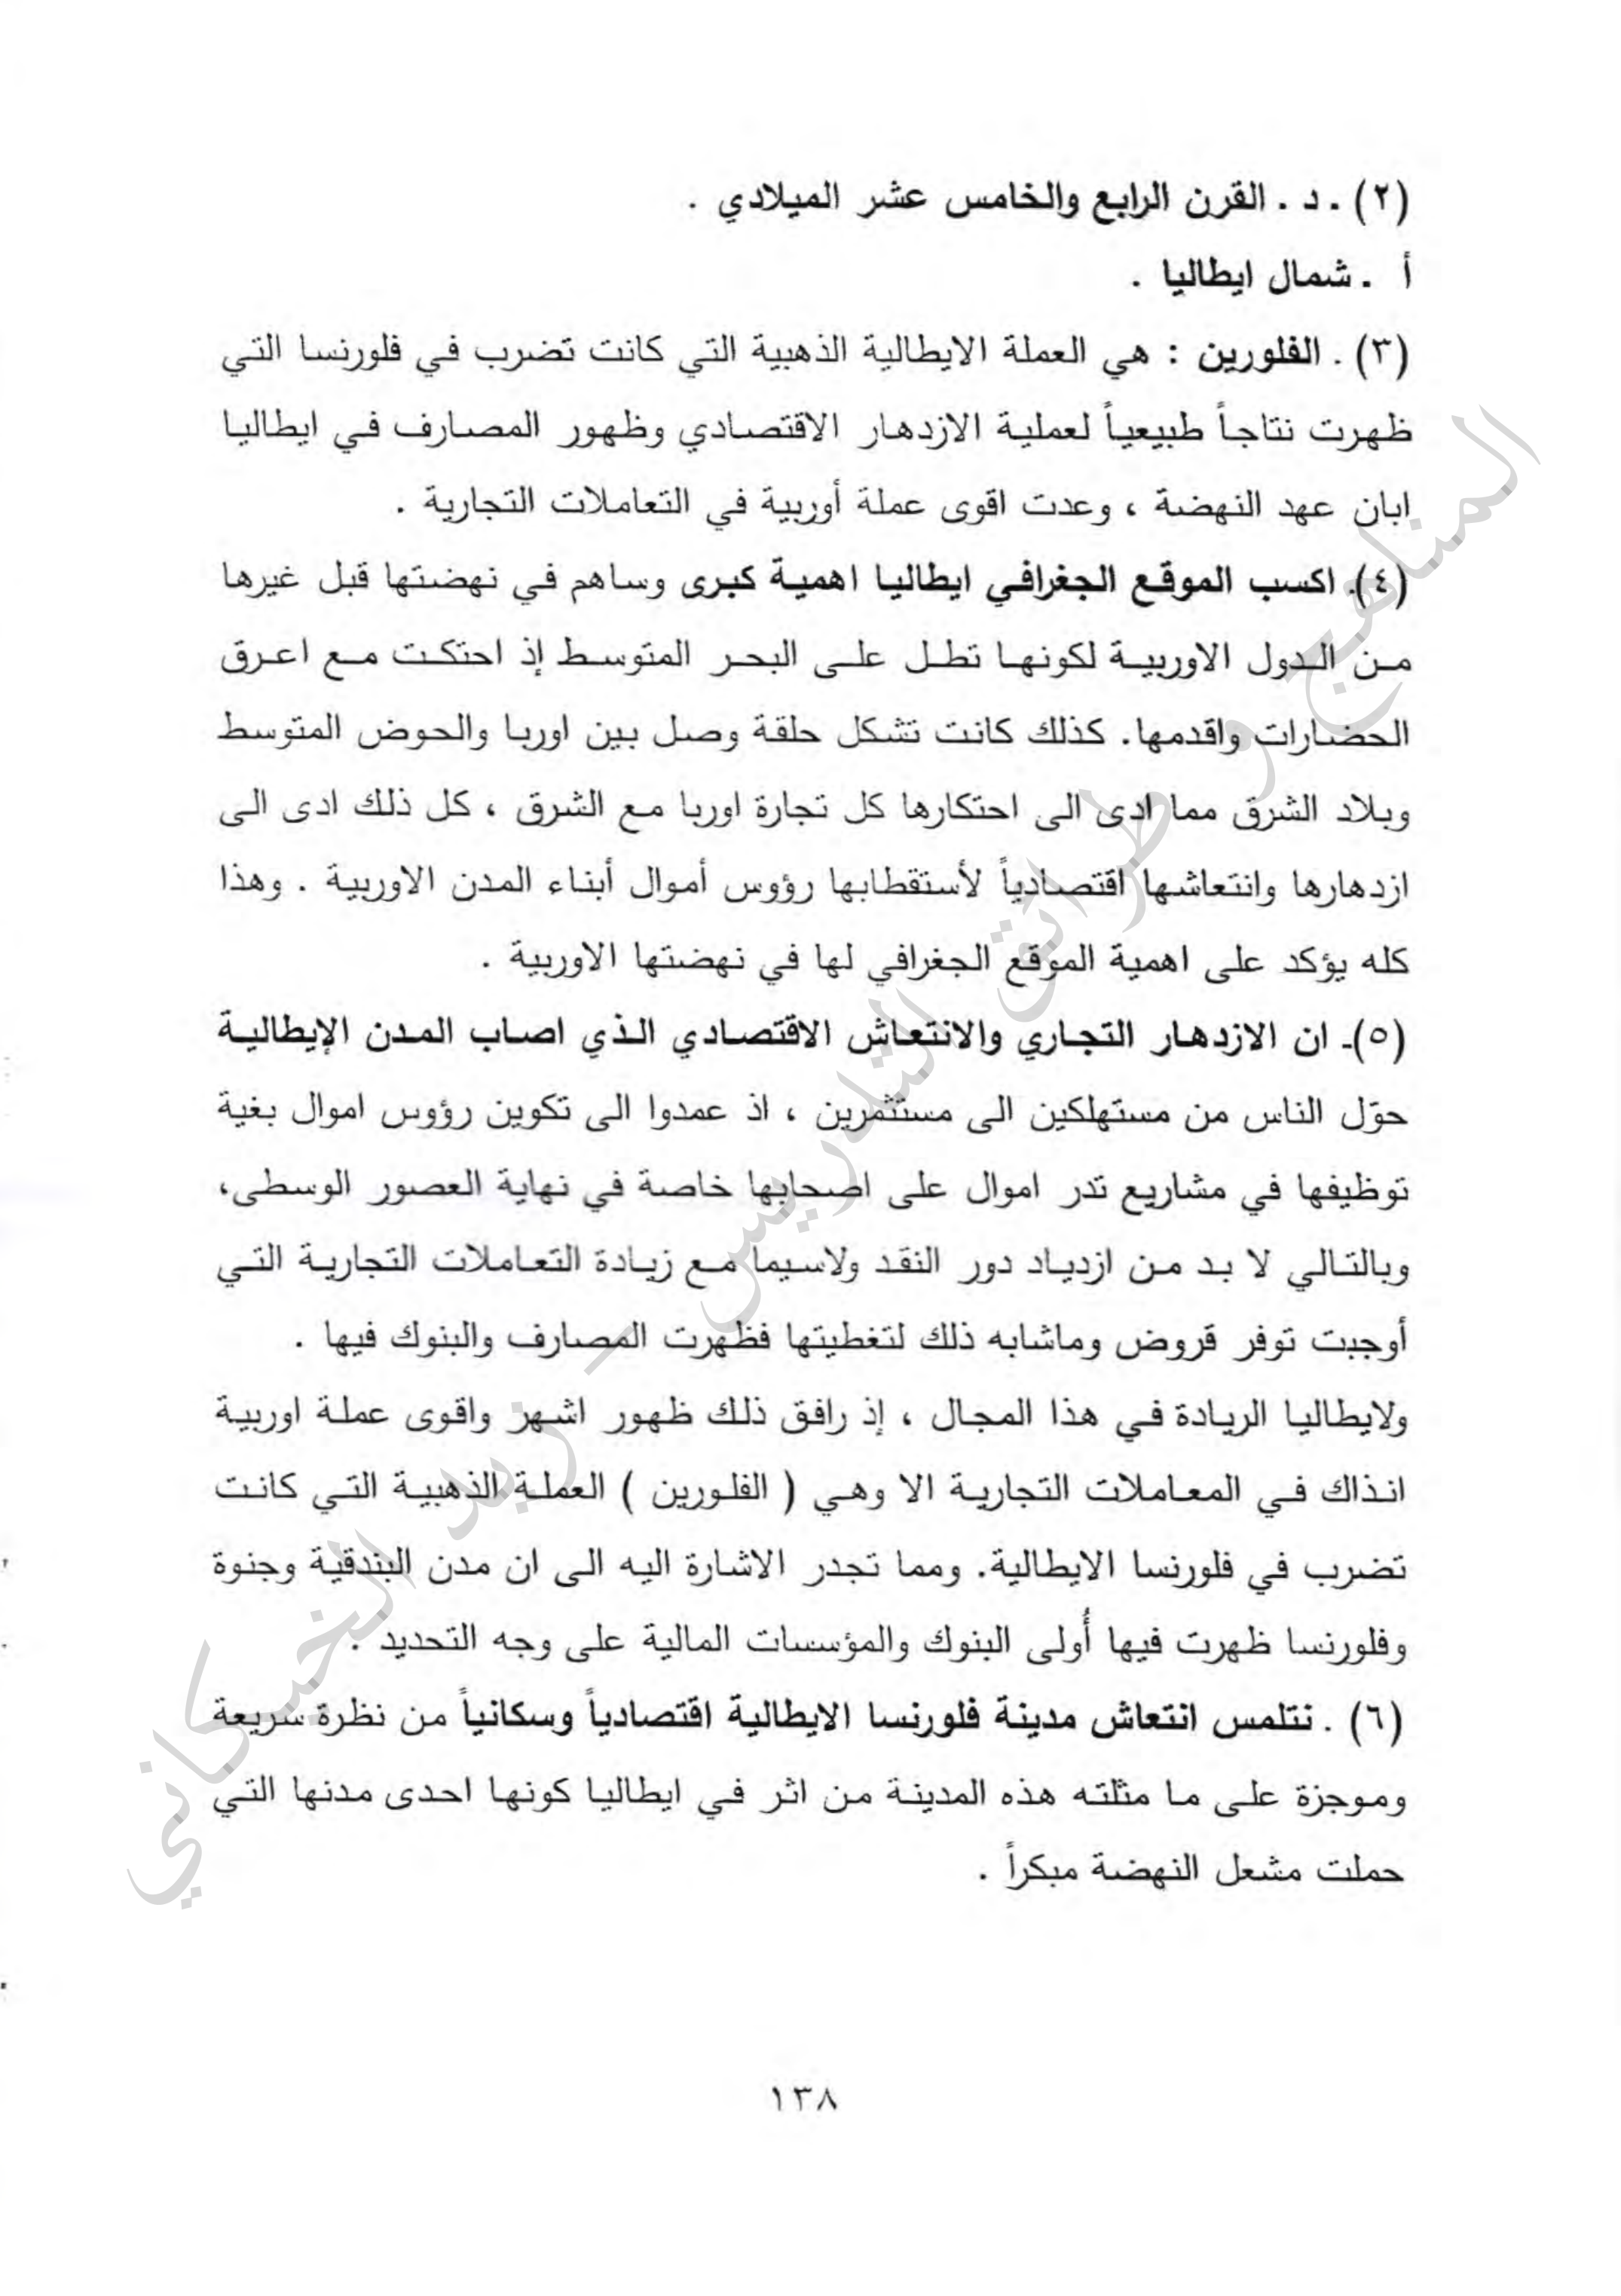 (٢) . د . القرن الرابع والخامس عشر الميلادي .
أ . شمال ايطاليا .
(٣) . الفلورين : هي العملة الايطالية الذهبية التي كانت تضرب في فلورنسا التي
ظهرت نتاجاً طبيعياً لعملية الازدهار الاقتصادي وظهور المصارف في ايطاليا
ابان عهد النهضة ، وعدت اقوى عملة أوربية في التعاملات التجارية .
(٤). اكسب الموقع الجغرافي ايطاليا اهمية كبرى وساهم في نهضتها قبل غيرها
من الدول الاوربية لكونها تطل على البحر المتوسط إذ احتكت مع اعرق
الحضارات واقدمها. كذلك كانت تشكل حلقة وصل بين اوربا والحوض المتوسط
وبلاد الشرق مما ادى الى احتكارها كل تجارة اوربا مع الشرق ، كل ذلك ادى الى
ازدهارها وانتعاشها اقتصادياً لأستقطابها رؤوس أموال أبناء المدن الاوربية . وهذا
كله يؤكد على اهمية الموقع الجغرافي لها في نهضتها الاوربية .
(٥)ـ ان الازدهار التجاري والانتعاش الاقتصادي الذي اصاب المدن الإيطالية
حوّل الناس من مستهلكين الى مستثمرين ، اذ عمدوا الى تكوين رؤوس اموال بغية
توظيفها في مشاريع تدر اموال على اصحابها خاصة في نهاية العصور الوسطى،
وبالتالي لا بد من ازدياد دور النقد ولاسيما مع زيادة التعاملات التجارية التي
أوجبت توفر قروض وماشابه ذلك لتغطيتها فظهرت المصارف والبنوك فيها .
ولايطاليا الريادة في هذا المجال ، إذ رافق ذلك ظهور اشهر واقوى عملة اوربية
انذاك في المعاملات التجارية الا وهي ( الفلورين ) العملة الذهبية التي كانت
تضرب في فلورنسا الايطالية. ومما تجدر الاشارة اليه الى ان مدن البندقية وجنوة
وفلورنسا ظهرت فيها أُولى البنوك والمؤسسات المالية على وجه التحديد .
(٦) . نتلمس انتعاش مدينة فلورنسا الايطالية اقتصادياً وسكانياً من نظرة سريعة
وموجزة على ما مثلته هذه المدينة من اثر في ايطاليا كونها احدى مدنها التي
حملت مشعل النهضة مبكراً .
١٣٨
المناهج و طرائق التدريس – زيد الخيكاني